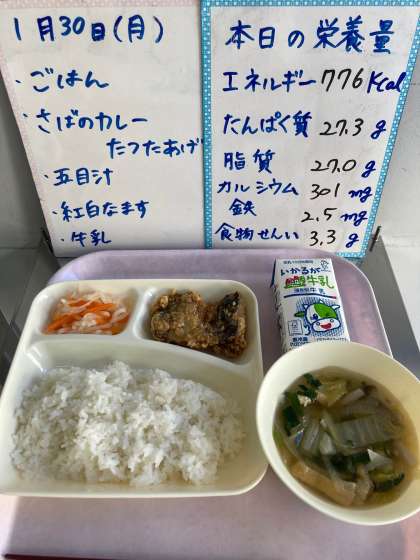 1月30日(月)
・ごはん
・さばのカレー
たつたあげ
・五目汁
・紅白なます
・牛乳
本日の栄養量
エネルギー 776 Kcal
たんぱく質 27.3 g
脂質 27.0 g
カルシウム 301 mg
鉄 2.5 mg
食物せんい 3.3 g
いかるが
牛乳